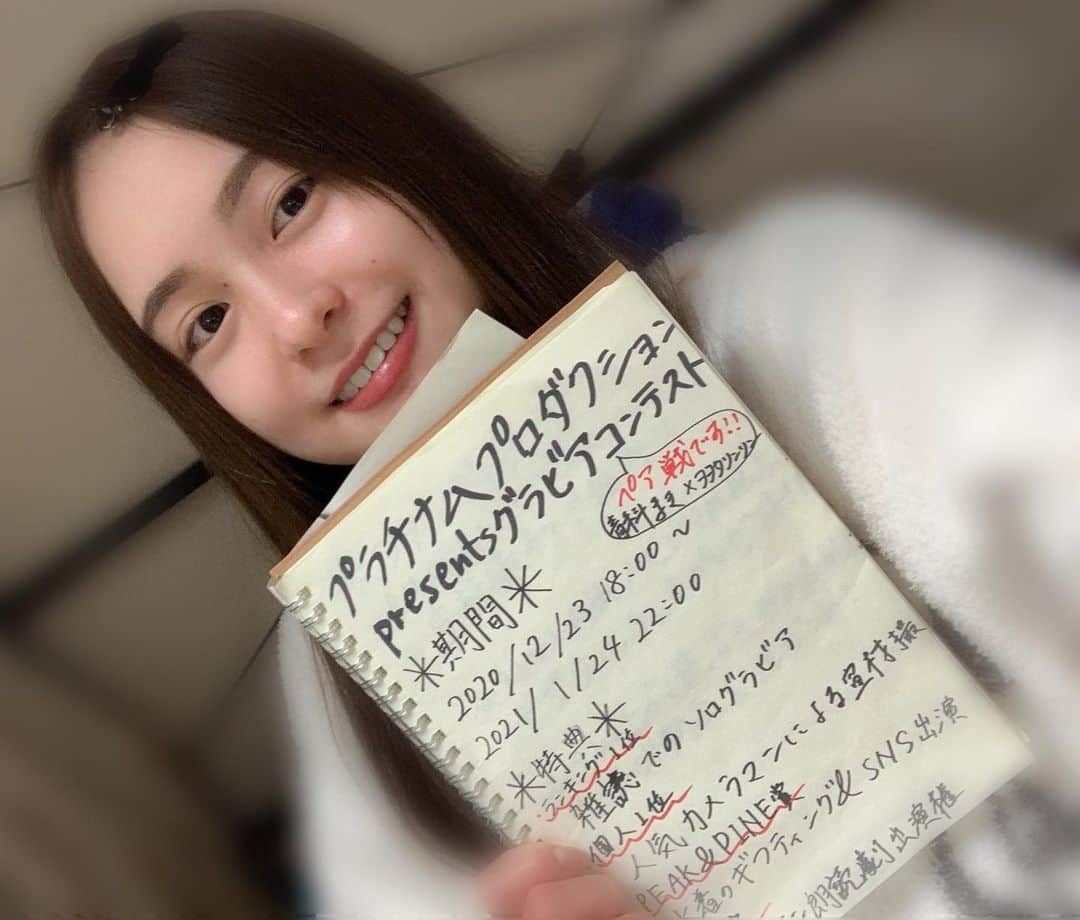 プラチナムプロダクション
presentsグラビアコンテスト
ペア戦でる!!
春科まき×ヲヲタリンリン
*期間*
2020/12/23 18:00 ~
2021/1/24 22:00
*特典*
ランキング1位
雑誌でのソログラビア
個人1位
人気カメラマンによる宣材撮
PEAK&PINE賞
着のギフティング&SNS出演
朗読劇出演権